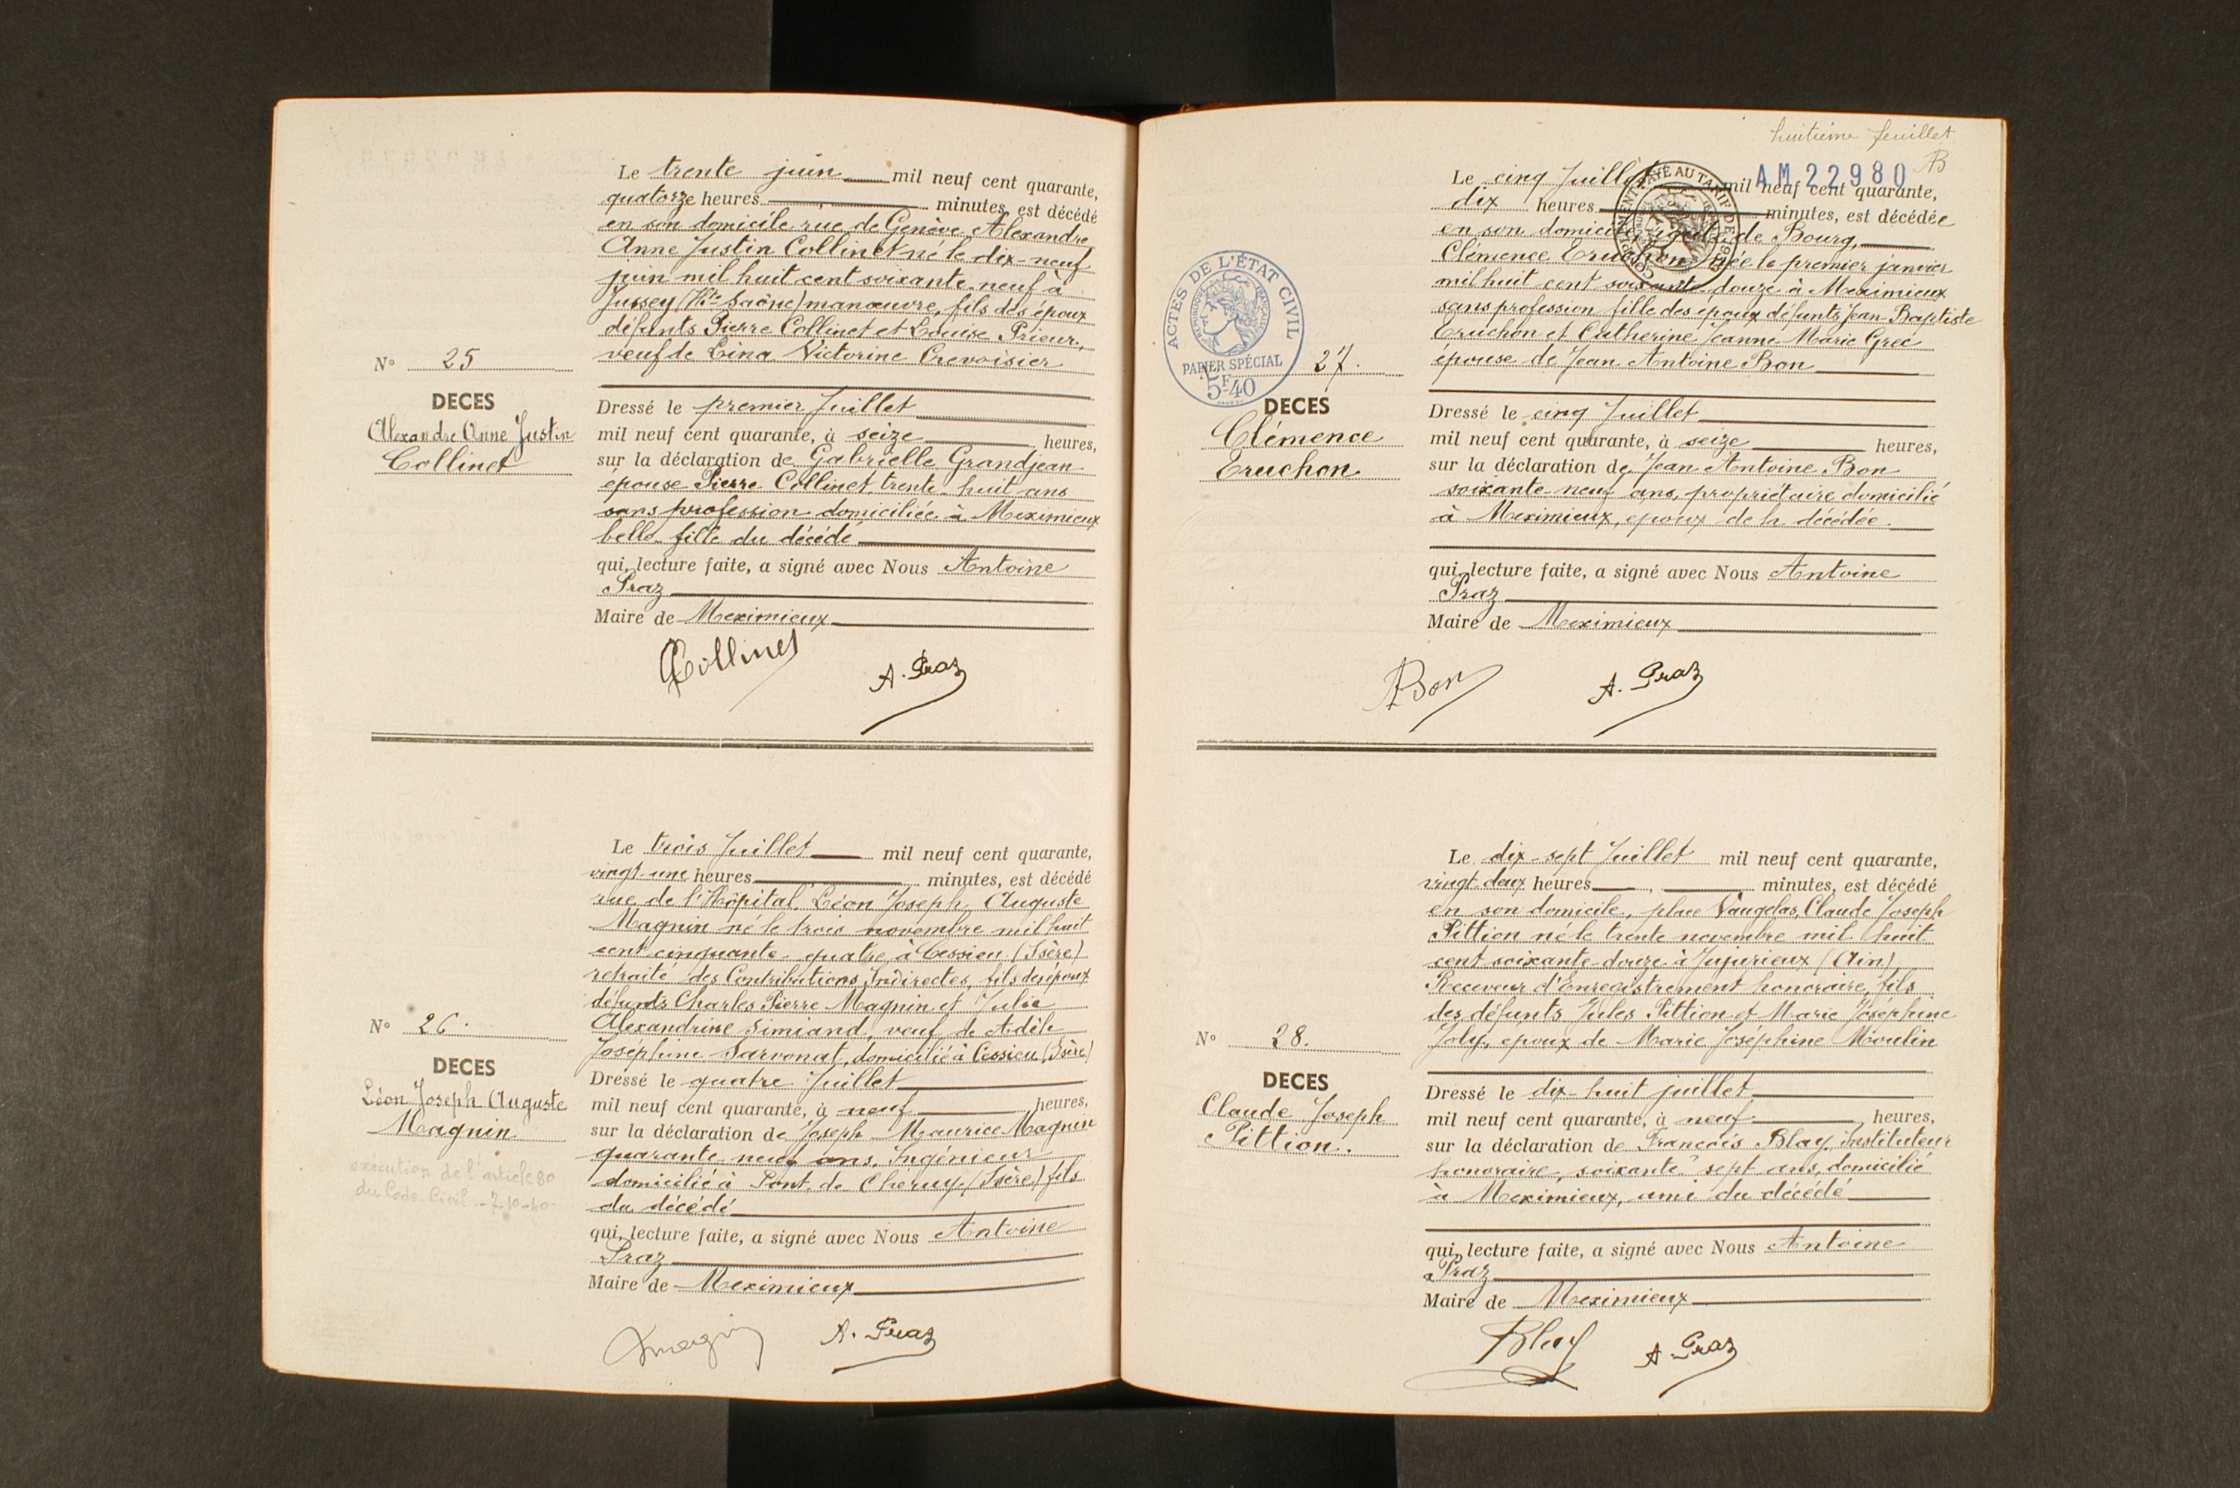 Le trente juin mil neuf cent quarante,
quatorze heures minutes, est décédé
en son domicile rue de Genève, Alexandre
Anne Justin Collinet né le dix-neuf
juin mil huit cent soixante neuf à
Jussey (Hte Saône) manœuvre, fils des époux
défunts Pierre Collinet et Louise Prieur,
veuf de Lina Victorine Crevoisier
N° 25
DECES
Alexandre Anne Justin
Collinet
Dressé le premier Juillet
mil neuf cent quarante, à seize heures,
sur la déclaration de Gabrielle Grandjean
épouse Pierre Collinet, trente-huit ans
sans profession domiciliée à Meximieux
belle-fille du décédé
qui, lecture faite, a signé avec Nous Antoine
Praz
Maire de Meximieux
Collinet
A. Praz
Le trois Juillet mil neuf cent quarante,
vingt-une heures minutes, est décédé
rue de l'Hôpital, Léon Joseph Auguste
Magnin né le trois novembre mil huit
cent cinquante-quatre, à Cessieu (Isère)
retraité des Contributions Indirectes, fils des époux
défunts Charles Pierre Magnin et Julie
Alexandrine Simiand, veuf de Adèle
Joséphine Sarvonat, domicilié à Cessieu (Isère)
N° 26.
DECES
Léon Joseph Auguste
Magnin
exécution de l'article 80
du Code Civil - 7-10-40
Dressé le quatre Juillet
mil neuf cent quarante, à neuf heures,
sur la déclaration de Joseph Maurice Magnin
quarante-neuf ans, Ingénieur
domicilié à Pont de Chéruy (Isère) fils
du décédé
qui, lecture faite, a signé avec Nous Antoine
Praz
Maire de Meximieux
Jmagnin
A. Praz
huitième feuillet
B
AM 22980
COMPLEMENT PAYÉ AU TARIF DE
Le cinq Juillet mil neuf cent quarante,
dix heures minutes, est décédée
en son domicile, de Bourg,
Clémence Eruchon née le premier janvier
mil huit cent soixante douze à Meximieux
sans profession fille des époux défunts Jean-Baptiste
Eruchon et Catherine Jeanne Marie Grec
épouse de Jean Antoine Bon
ACTES DE L'ÉTAT CIVIL
PAPIER SPÉCIAL
5F40
27.
DECES
Clémence
Eruchon
Dressé le cinq Juillet
mil neuf cent quarante, à seize heures,
sur la déclaration de Jean Antoine Bon
soixante-neuf ans, propriétaire domicilié
à Meximieux, époux de la décédée.
qui, lecture faite, a signé avec Nous Antoine
Praz
Maire de Meximieux
Bon
A. Praz
Le dix-sept Juillet mil neuf cent quarante,
vingt-deux heures minutes, est décédé
en son domicile, place Vaugelas, Claude Joseph
Pittion né le trente novembre mil huit
cent soixante-douze à Jujurieux (Ain)
Receveur d'Enregistrement honoraire, fils
des défunts Jules Pittion et Marie Joséphine
Joly, époux de Marie Joséphine Moulin
N° 28.
DECES
Claude Joseph
Pittion.
Dressé le dix-huit juillet
mil neuf cent quarante, à neuf heures,
sur la déclaration de François Blay, instituteur
honoraire, soixante-sept ans, domicilié
à Meximieux, ami du décédé
qui, lecture faite, a signé avec Nous Antoine
Praz
Maire de Meximieux
Blay
A. Praz